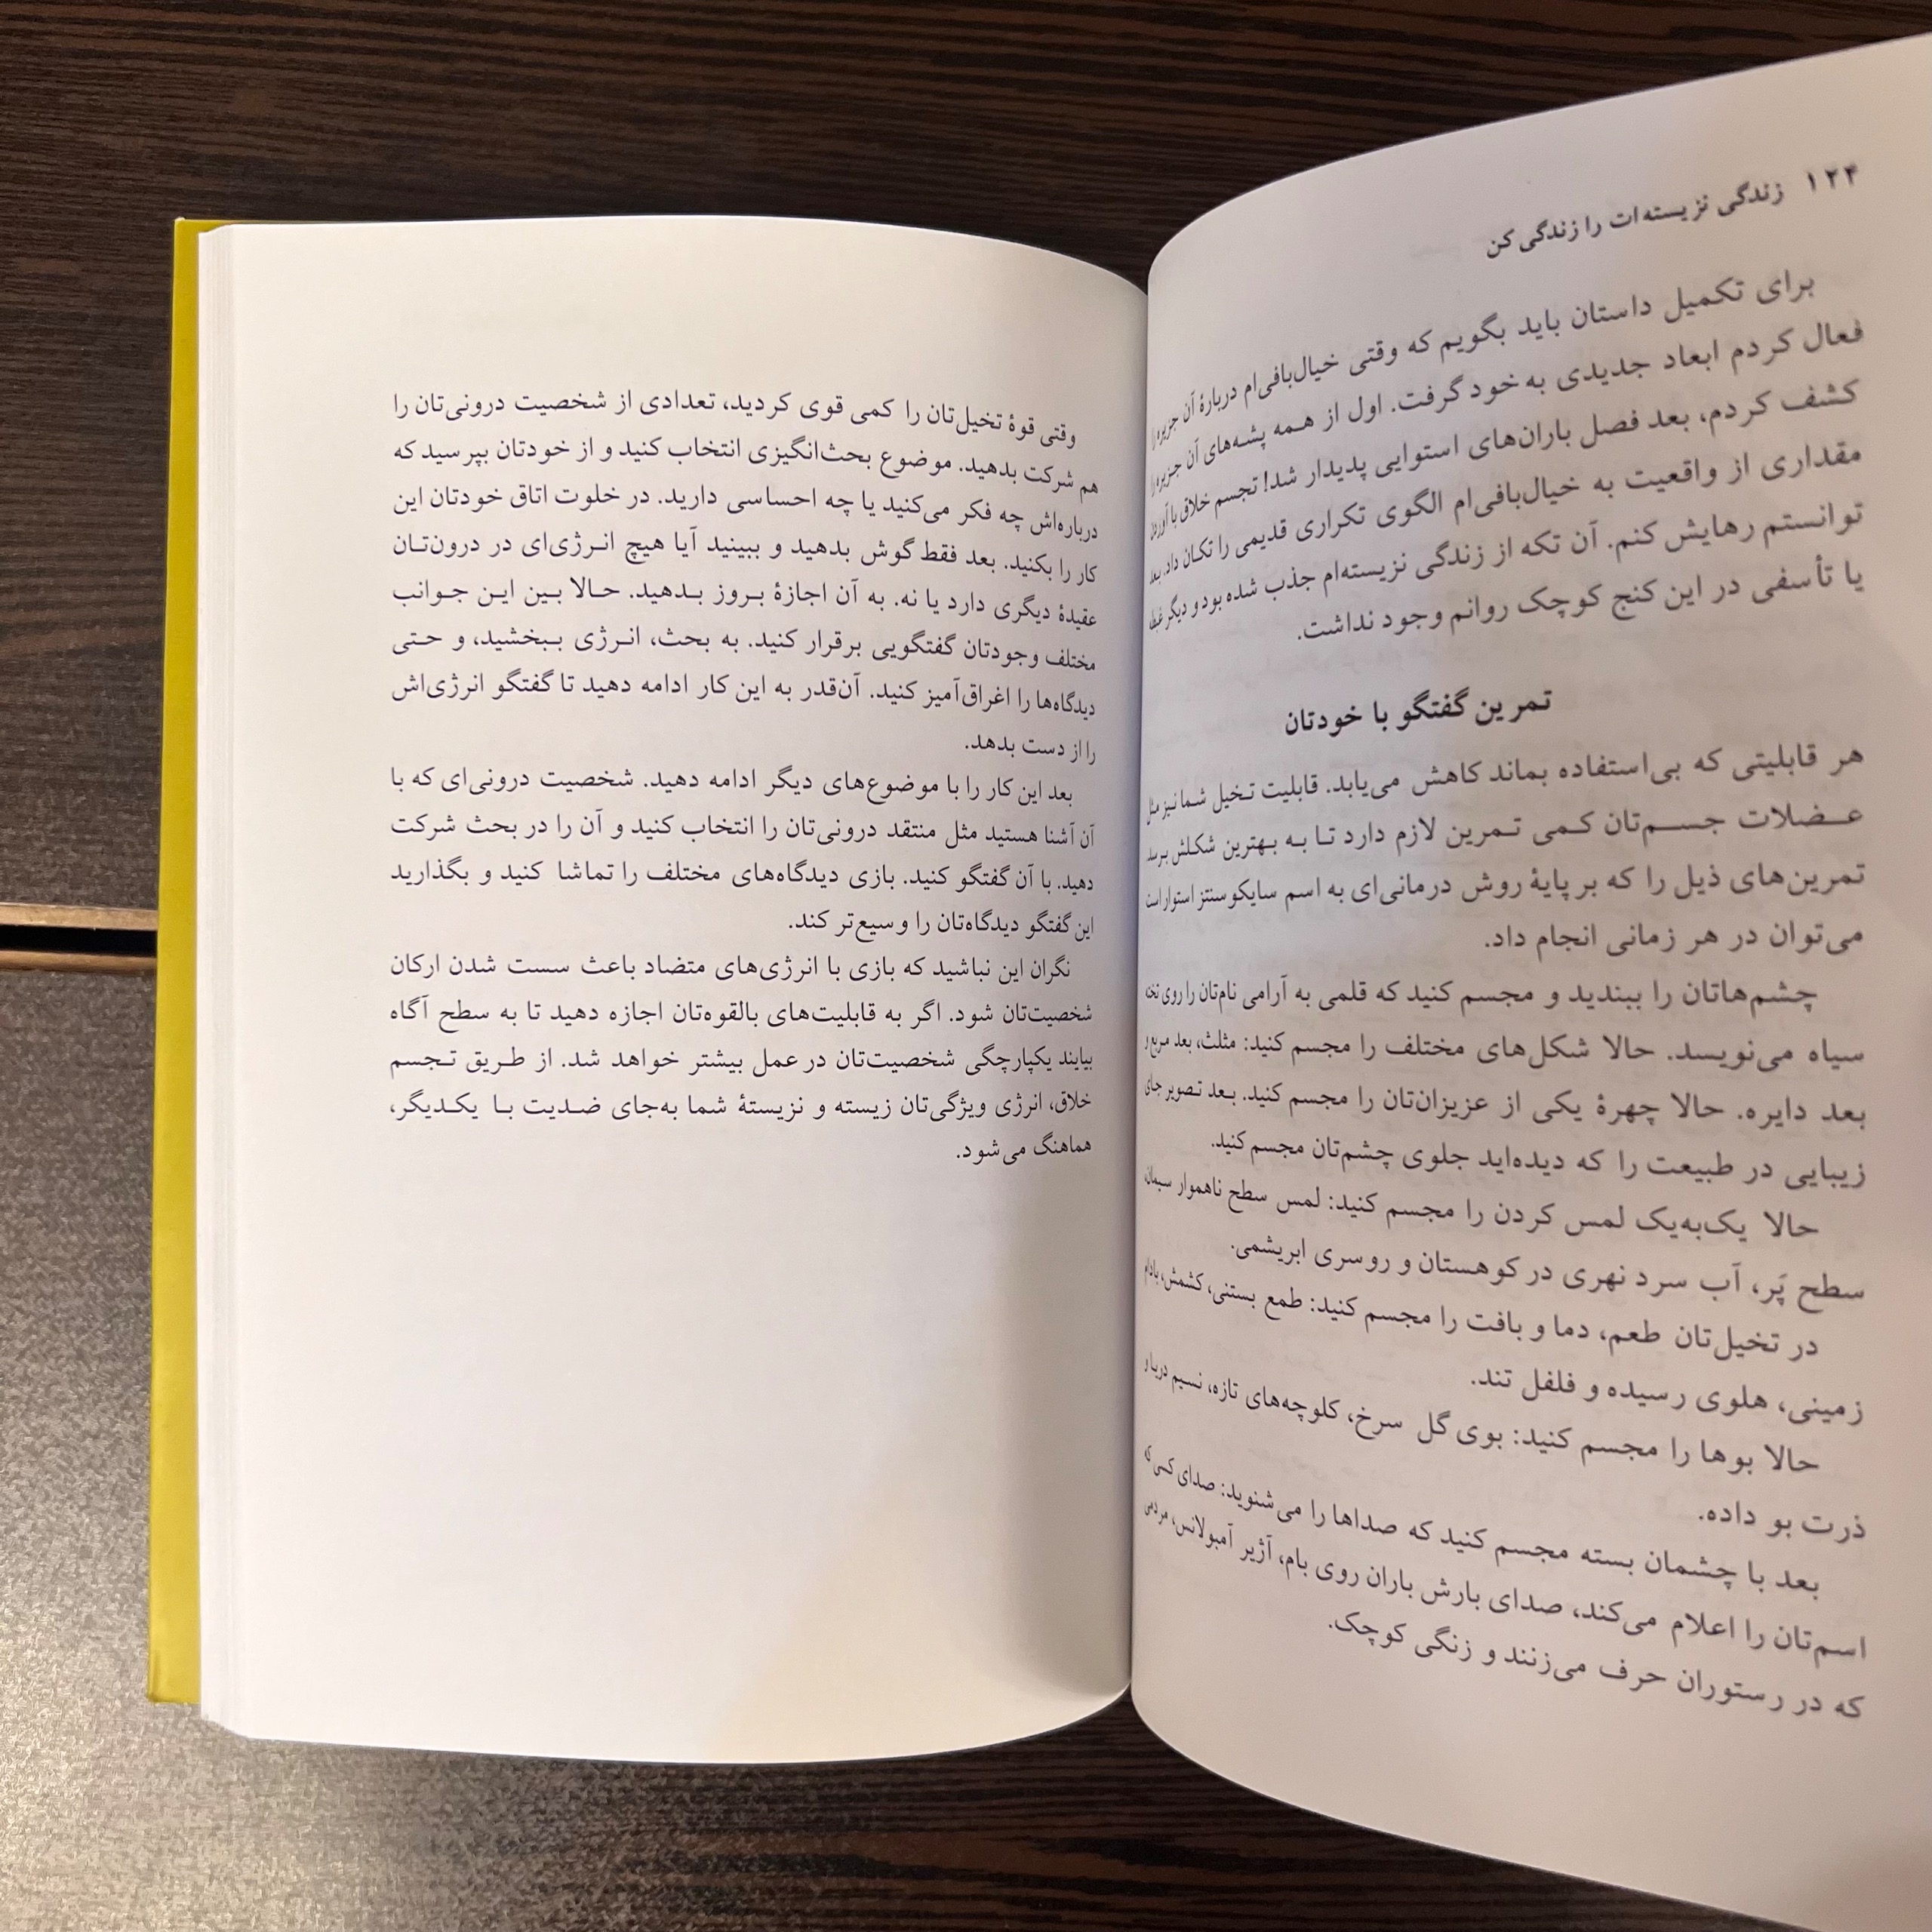 ۱۲۴ زندگی نزیسته‌ات را زندگی کن
برای تکمیل داستان باید بگویم که وقتی خیال‌بافی‌ام دربارهٔ آن جزیره را
فعال کردم ابعاد جدیدی به خود گرفت. اول از همه پشه‌های آن جزیره را
کشف کردم، بعد فصل باران‌های استوایی پدیدار شد! تجسم خلاق با آوردن
مقداری از واقعیت به خیال‌بافی‌ام الگوی تکراری قدیمی را تکان داد. بعد
توانستم رهایش کنم. آن تکه از زندگی نزیسته‌ام جذب شده بود و دیگر غبطه
یا تأسفی در این کنج کوچک روانم وجود نداشت.
تمرین گفتگو با خودتان
هر قابلیتی که بی‌استفاده بماند کاهش می‌یابد. قابلیت تخیل شما نیز مثل
عضلات جسم‌تان کمی تمرین لازم دارد تا به بهترین شکلش برسد.
تمرین‌های ذیل را که بر پایهٔ روش درمانی‌ای به اسم سایکوسنتز استوار است
می‌توان در هر زمانی انجام داد.
چشم‌هاتان را ببندید و مجسم کنید که قلمی به آرامی نام‌تان را روی تخته
سیاه می‌نویسد. حالا شکل‌های مختلف را مجسم کنید: مثلث، بعد مربع و
بعد دایره. حالا چهرهٔ یکی از عزیزان‌تان را مجسم کنید. بعد تصویر جای
زیبایی در طبیعت را که دیده‌اید جلوی چشم‌تان مجسم کنید.
حالا یک‌به‌یک لمس کردن را مجسم کنید: لمس سطح ناهموار سیمان،
سطح پَر، آب سرد نهری در کوهستان و روسری ابریشمی.
در تخیل‌تان طعم، دما و بافت را مجسم کنید: طمع بستنی، کشمش، بادام
زمینی، هلوی رسیده و فلفل تند.
حالا بوها را مجسم کنید: بوی گل سرخ، کلوچه‌های تازه، نسیم دریا و
ذرت بو داده.
بعد با چشمان بسته مجسم کنید که صداها را می‌شنوید: صدای کسی که
اسم‌تان را اعلام می‌کند، صدای بارش باران روی بام، آژیر آمبولانس، مردمی
که در رستوران حرف می‌زنند و زنگی کوچک.
وقتی قوهٔ تخیل‌تان را کمی قوی کردید، تعدادی از شخصیت درونی‌تان را
هم شرکت بدهید. موضوع بحث‌انگیزی انتخاب کنید و از خودتان بپرسید که
درباره‌اش چه فکر می‌کنید یا چه احساسی دارید. در خلوت اتاق خودتان این
کار را بکنید. بعد فقط گوش بدهید و ببینید آیا هیچ انرژی‌ای در درون‌تان
عقیدهٔ دیگری دارد یا نه. به آن اجازهٔ بروز بدهید. حالا بین این جوانب
مختلف وجودتان گفتگویی برقرار کنید. به بحث، انرژی ببخشید، و حتی
دیدگاه‌ها را اغراق‌آمیز کنید. آن‌قدر به این کار ادامه دهید تا گفتگو انرژی‌اش
را از دست بدهد.
بعد این کار را با موضوع‌های دیگر ادامه دهید. شخصیت درونی‌ای که با
آن آشنا هستید مثل منتقد درونی‌تان را انتخاب کنید و آن را در بحث شرکت
دهید. با آن گفتگو کنید. بازی دیدگاه‌های مختلف را تماشا کنید و بگذارید
این گفتگو دیدگاه‌تان را وسیع‌تر کند.
نگران این نباشید که بازی با انرژی‌های متضاد باعث سست شدن ارکان
شخصیت‌تان شود. اگر به قابلیت‌های بالقوه‌تان اجازه دهید تا به سطح آگاه
بیایند یکپارچگی شخصیت‌تان در عمل بیشتر خواهد شد. از طریق تجسم
خلاق، انرژی ویژگی‌تان زیسته و نزیستهٔ شما به‌جای ضدیت با یکدیگر،
هماهنگ می‌شود.